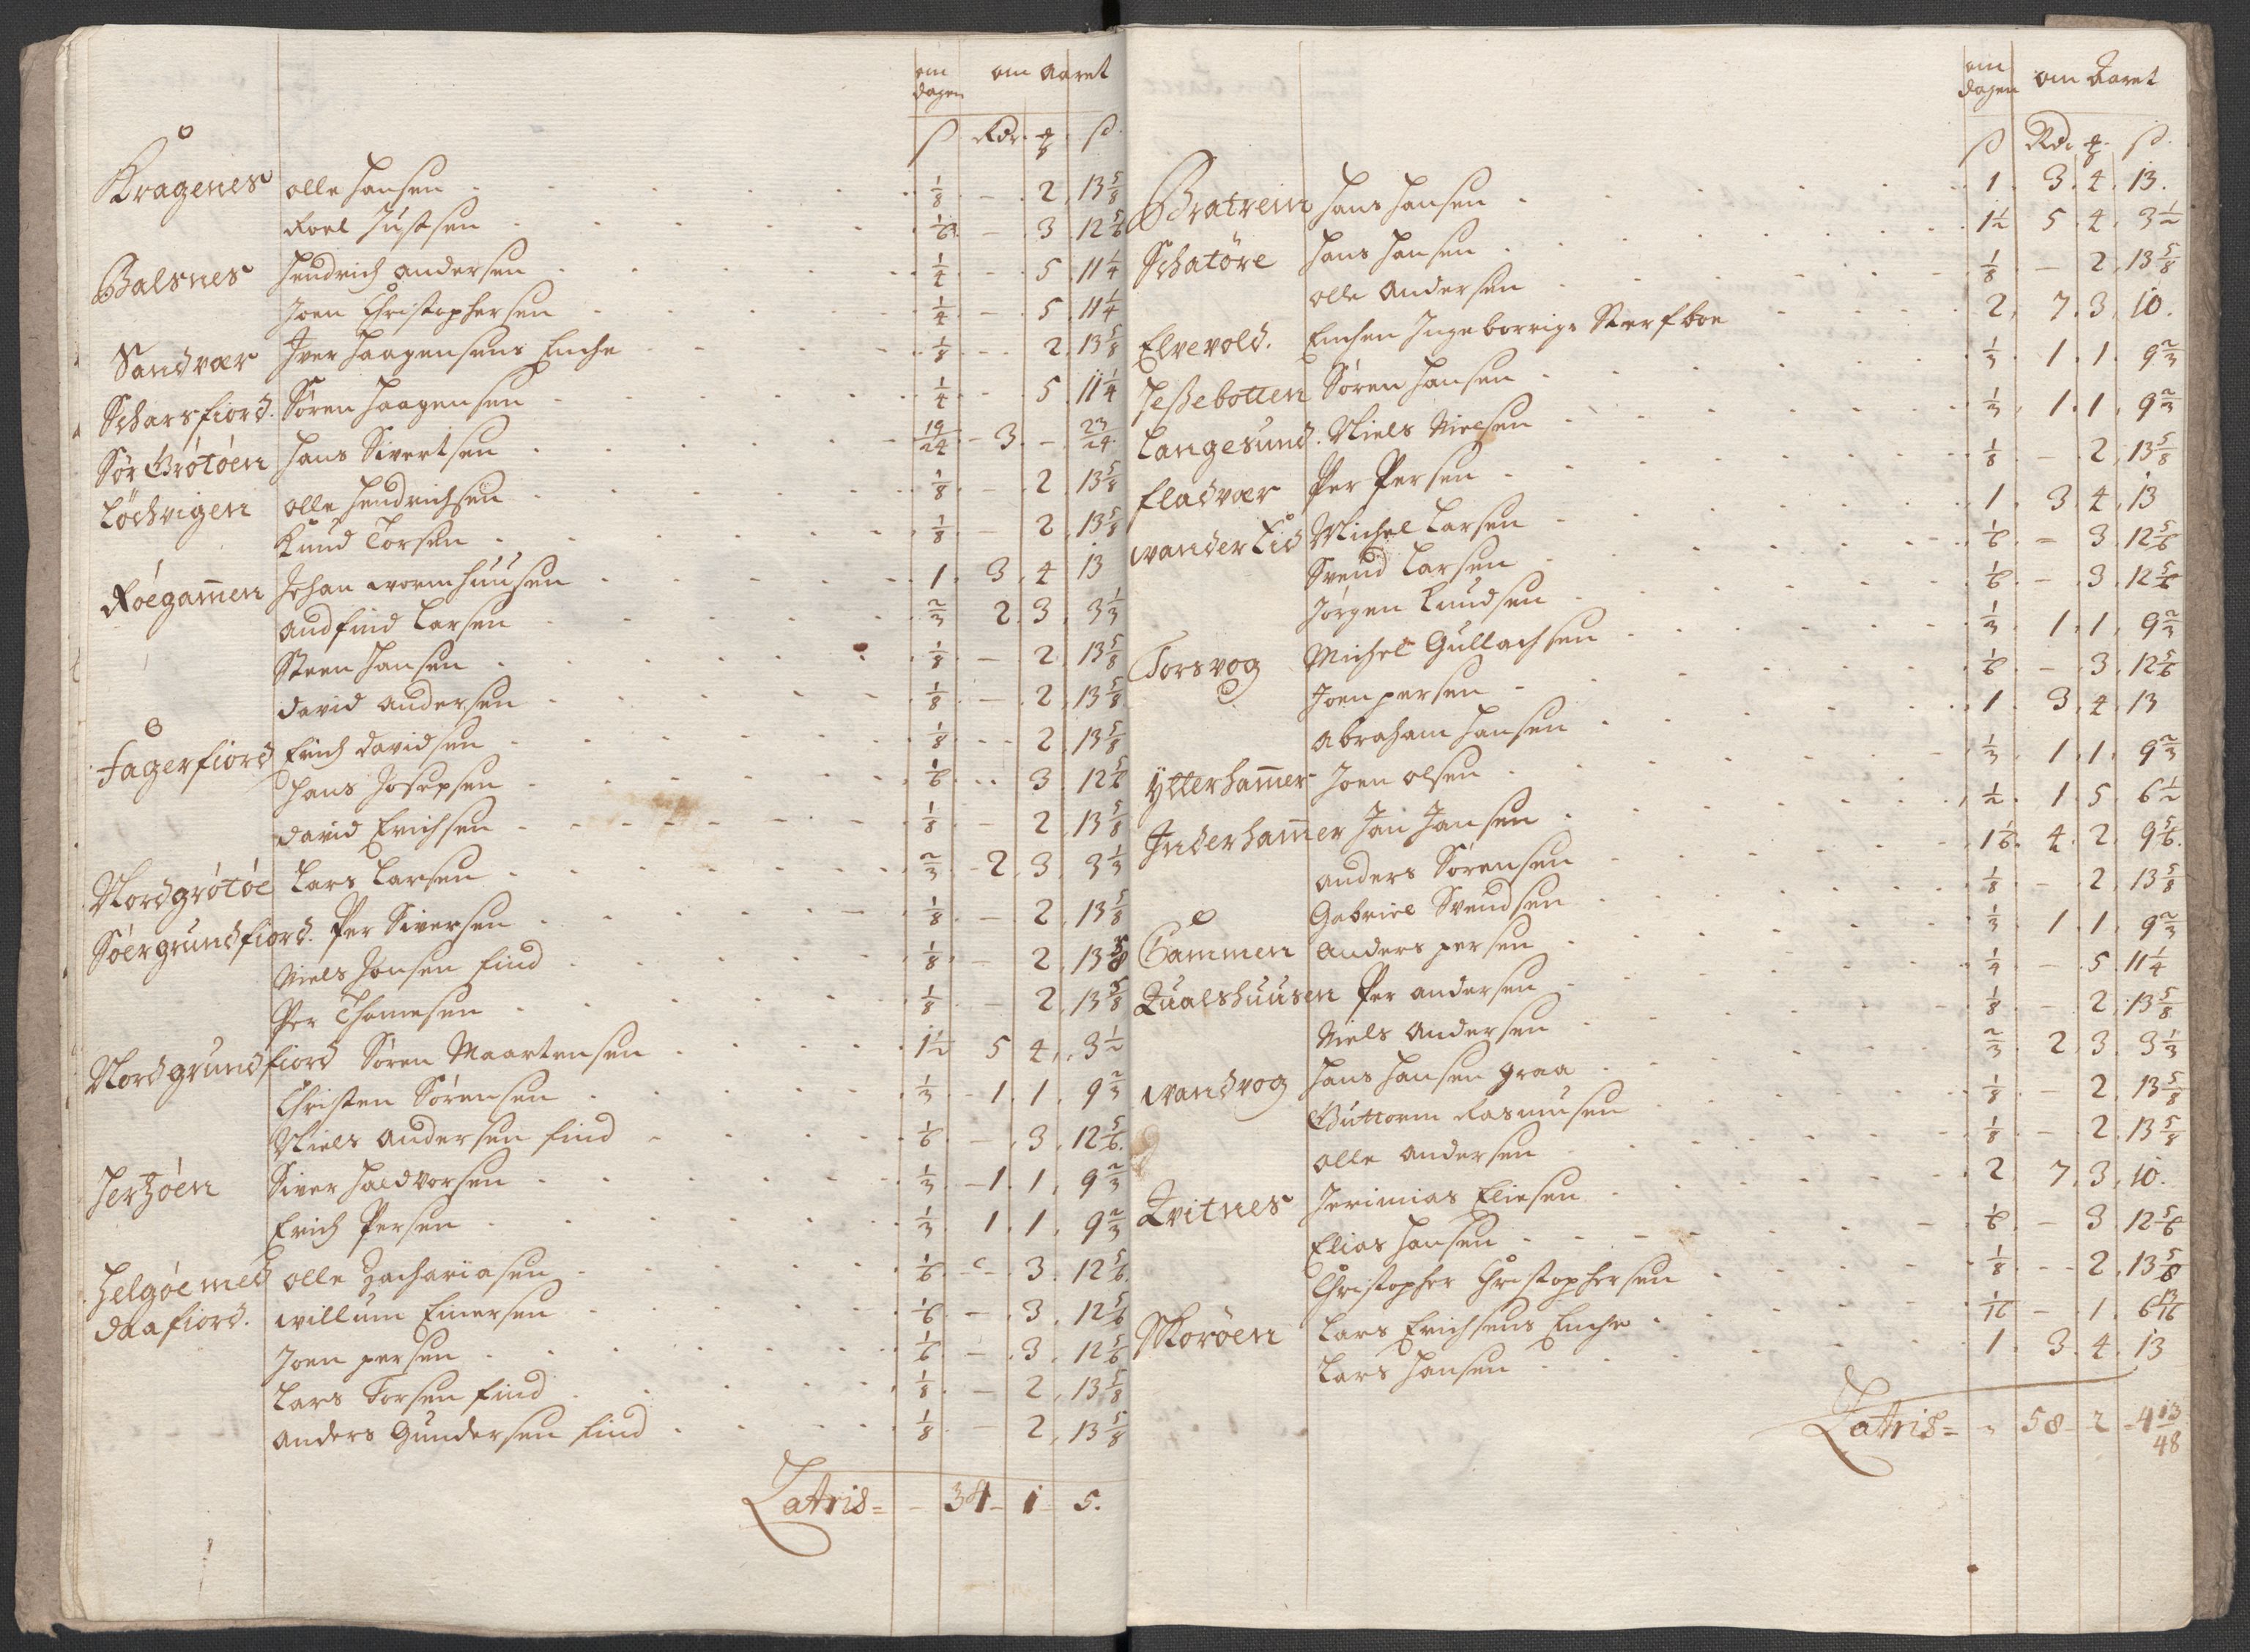 om dagen om Aaret
ß Rdr. ꝣ ß
Kragenes olle Hansen 1/8 - 2 13 5/8
Roel Justsen 1/6 - 3 12 5/6
Balsnes Hendrich Andersen 1/4 - 5 11 1/4
Joen Christophersen 1/4 - 5 11 1/4
Sandvær Iver Haagensens Enche 1/8 - 2 13 5/8
Scharsfiord. Sören Haagensen 1/4 - 5 11 1/4
Sör Grötöen Hans Sivertsen 19/24 3 - 23/24
Löchvigen olle Hendrichsen 1/8 - 2 13 5/8
Knud Torsen 1/8 - 2 13 5/8
Röegam̄en Johan wormhuusen 1 3 4 13
Andfind Larsen 2/3 2 3 3 1/3
Steen Hansen 1/8 - 2 13 5/8
David Andersen 1/8 - 2 13 5/8
Fagerfiord Erich Davidsen 1/8 - 2 13 5/8
Hans Josepsen 1/6 - 3 12 5/6
David Erichsen 1/8 - 2 13 5/8
Nordgrötöe Lars Larsen 2/3 2 3 3 1/3
Söergrundfiord. Per Siversen 1/8 - 2 13 5/8
Niels Jonsen find 1/8 - 2 13 5/8
Per Thomesen 1/8 - 2 13 5/8
Nordgrundfiord Sören Maartensen 1 1/2 5 4 3 1/2
Christen Sörensen 1/3 1 1 9 2/3
Niels Andersen find 1/6 - 3 12 5/6
Hertzöen Siver Haldvorsen 1/3 1 1 9 2/3
Erich Persen 1/3 1 1 9 2/3
Helgöe med olle Zachariasen 1/6 - 3 12 5/6
daafiord. willum Einersen 1/6 - 3 12 5/6
Joen persen 1/6 - 3 12 5/6
Lars Torsen find 1/8 - 2 13 5/8
Anders Gundersen find 1/8 2 13 5/8
Latris = - 34 - 1 5.
om dagen om Aaret
ß Rdr ꝣ ß
Bratrein Hans Hansen 1 3 4 13
Schatöre Hans Hansen 1 1/2 5 4 3 1/2
olle Andersen 1/8 - 2 13 5/8
Elvevold. Enchen Ingeborrigs Sterfboe 2 7 3 10
Jeßebotten Sören Hansen 1/3 1 1 9 2/3
Langesund. Niels Nielsen 1/3 1 1 9 2/3
fladvær Per Persen 1/8 - 2 13 5/8
wanderEid Michel Larsen 1 3 4 13
Svend Larsen 1/6 - 3 12 5/6
Jörgen Knudsen 1/6 - 3 12 5/6
Torsvog Michel Gullachsen 1/3 1 1 9 2/3
Joen persen 1/6 - 3 12 5/6
Abraham Hansen 1 3 4 13
ÿtterham̄er Joen olsen 1/3 1 1 9 2/3
Inderham̄er Jan Jansen 1/2 1 5 6 1/2
Anders Sörensen 1 1/6 4 2 9 5/6
Gabriel Svendsen 1/8 - 2 13 5/8
Gammen Anders persen 1/3 1 1 9 2/3
Qualshuusen Per Andersen 1/4 - 5 11 1/4
Niels Andersen 1/8 - 2 13 5/8
wandvog Hans Hansen graa 2/3 2 3 3 1/3
Guttorm Rasmusen 1/8 - 2 13 5/8
olle Andersen 1/8 - 2 13 5/8
Qvitnes Jerimias Eliesen 2 7 3 10
Elias Hansen 1/6 - 3 12 5/6
Christopher Christophersen 1/8 - 2 13 5/8
Skoröen Lars Erichsens Enche 1/16 - 1 6 13/16
Lars Hansen 1 3 4 13
Latris = 58 - 2 - 4 13/48